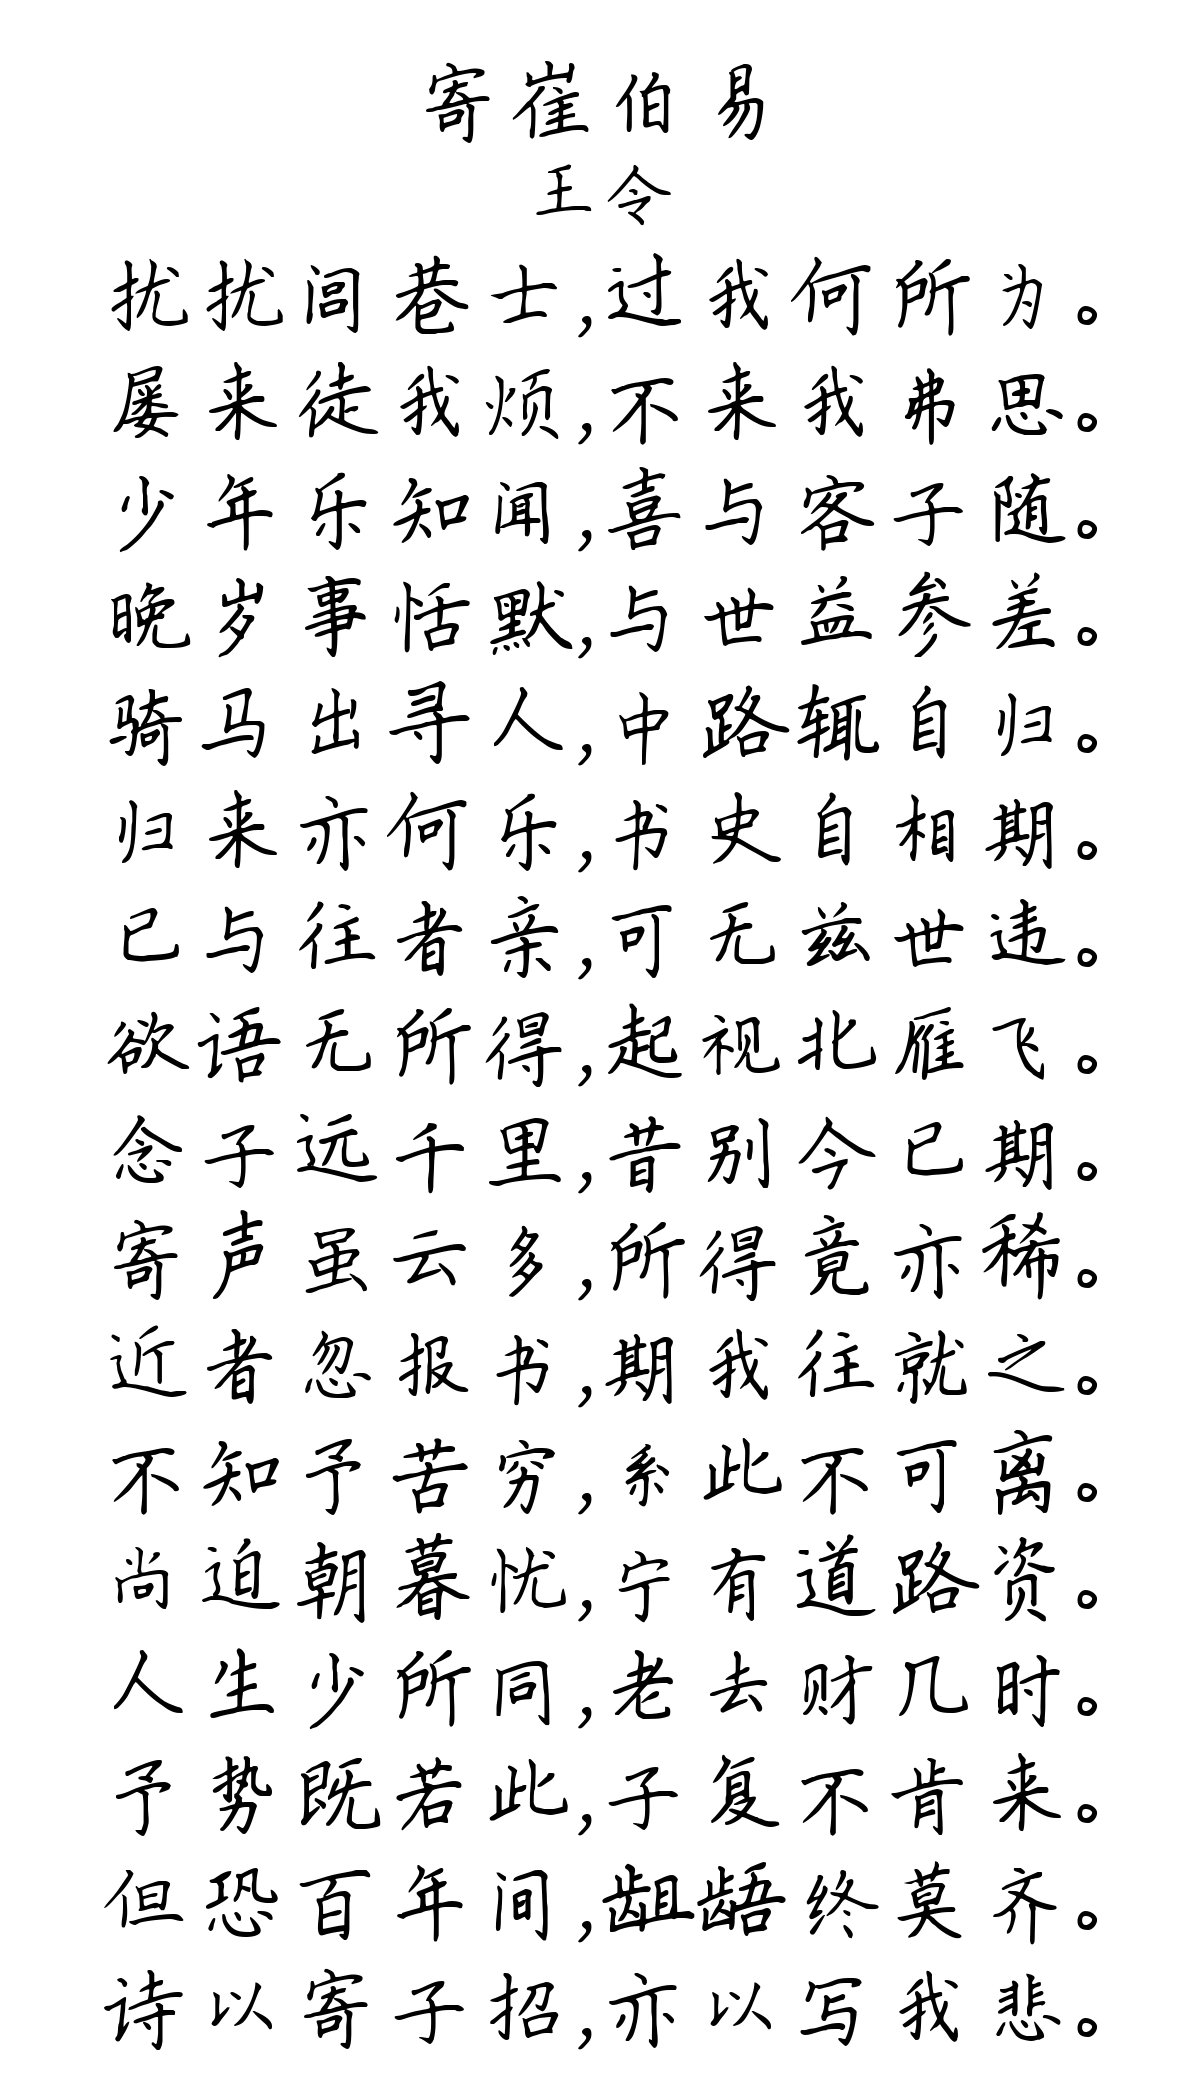 寄崔伯易
王令
扰扰闾巷士,过我何所为。
屡来徒我烦,不来我弗思。
少年乐知闻,喜与客子随。
晚岁事恬默,与世益参差。
骑马出寻人,中路辄自归。
归来亦何乐,书史自相期。
已与往者亲,可无兹世违。
欲语无所得,起视北雁飞。
念子远千里,昔别今已期。
寄声虽云多,所得竟亦稀。
近者忽报书,期我往就之。
不知予苦穷,系此不可离。
尚迫朝暮忧,宁有道路资。
人生少所同,老去财几时。
予势既若此,子复不肯来。
但恐百年间,龃龉终莫齐。
诗以寄子招,亦以写我悲。